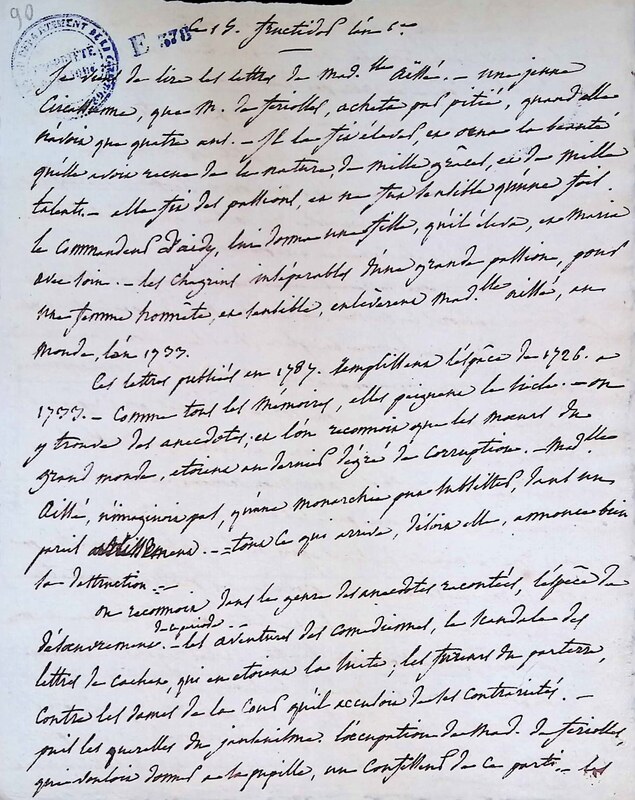 90
E 378
Ce 15. fructidor l'an 6.e
Je viens de lire les lettres de mad.lle Aïssé. — une jeune
Circassienne, que M. de feriolles, acheta par pitié, quand elle
n'avoit que quatre ans. — Il la fit elever, et orna la beauté
qu'elle avoit recue de la nature, de mille grâces, et de mille
talents. — elle fit des passions, et ne fut sensible qu'une fois.
le commandeur d'aidy, lui donna une fille, qu'il éleva, et maria
avec soin. — les chagrins inséparables d'une grande passion, pour
une femme honnête, et sensible, enlèverent mad.lle aïssé, au
monde, l'an 1733.
Ces lettres publiés en 1787. remplissent l'espâce de 1726. a
1733. — Comme tous les mémoires, elles peignent le siecle. — on
y trouve des anecdotes, et l'on reconnoit que les mœurs du
grand monde, etoient au dernier dégré de corruption. — Mad.lle
Aïssé, n'imaginoit pas, qu'une monarchie put subsister, dans un
pareil — tout ce qui arrive, disoit elle, annonce bien
sa destruction. —
on reconnoit, dans le genre des anecdotes racontées, l'espèce de
désœuvrement — les aventures des comediennes, le scandale des
lettres de cachet, qui en etoient la suite; les fureurs du parterre,
contre les dames de la Cour qu'il accusoit de ses contrariétés. —
puis les querelles du jansénisme l'occupation de Mad. de feriolles,
qui vouloit donner a sa pupille, un Confesseur de ce parti. — les